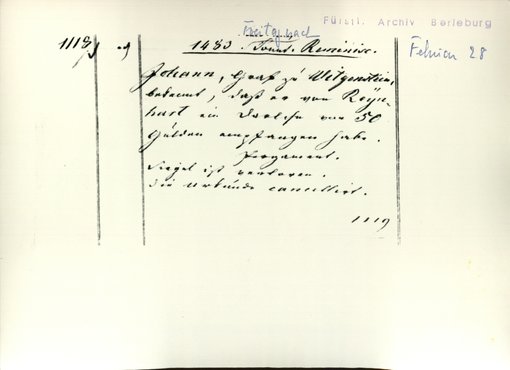 Fürstl. Archiv Berleburg
Freitag nach
1118
1483. Sonnt. Reminisc.
Februar 28
Johann, Graf zu Witgenstein,
bekennt, daß er von Reyn-
hart ein Darlehn von 50
Gulden empfangen habe.
Pergament.
Siegel ist verloren.
Die Urkunde cancellirt.
1119